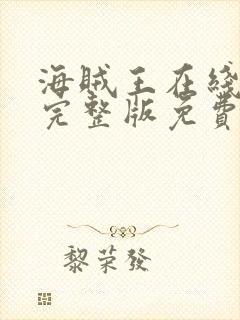 海贼王在綫
完整版免費
黎荣發